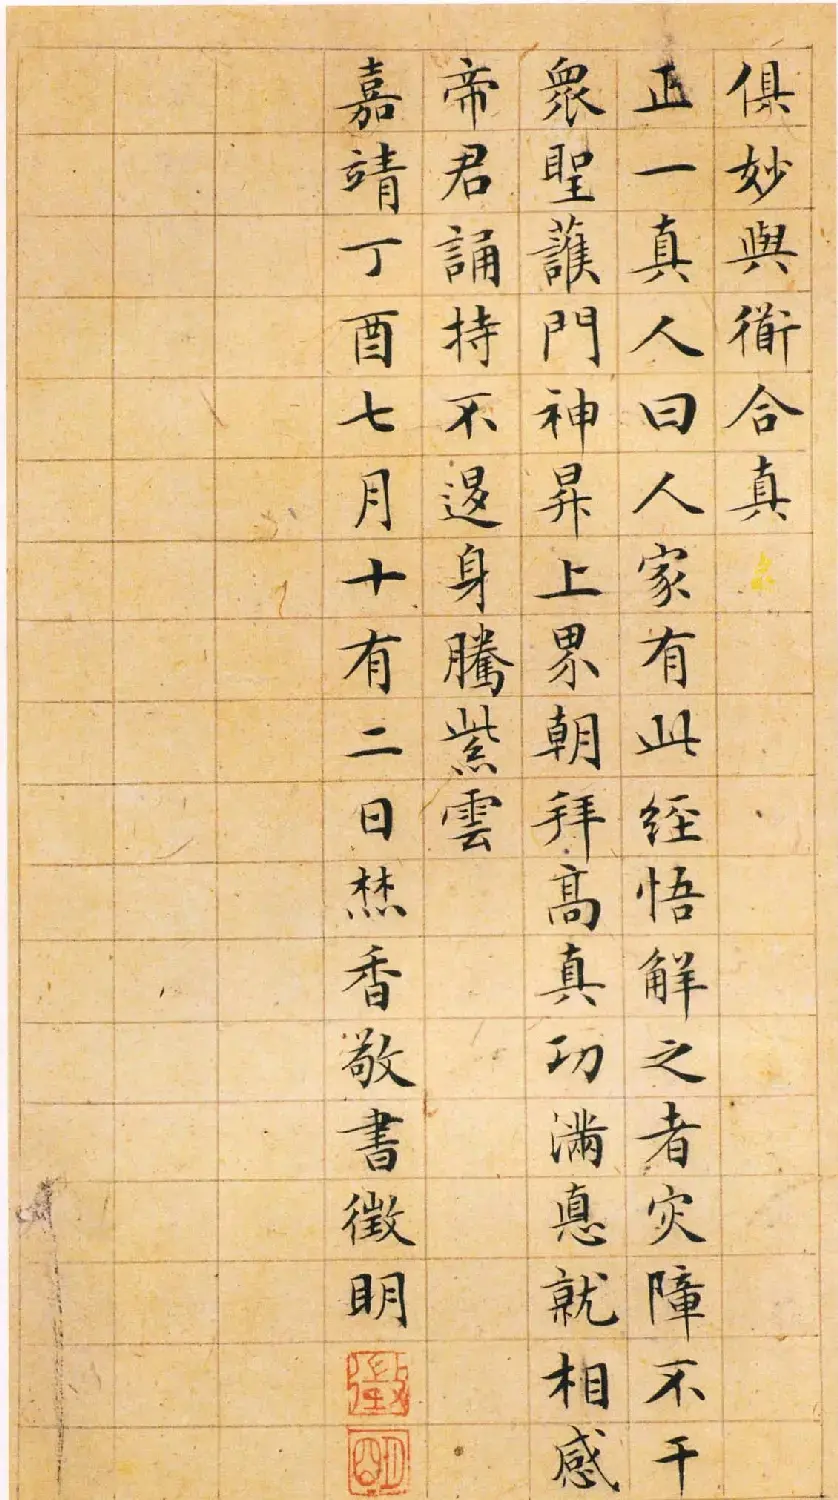 俱妙與衟合真
正一真人曰人家有此經悟解之者灾障不干
衆聖護門神昇上界朝拜高真功滿悳就相感
帝君誦持不退身騰紫雲
嘉靖丁酉七月十有二日焚香敬書徵明
徵
明